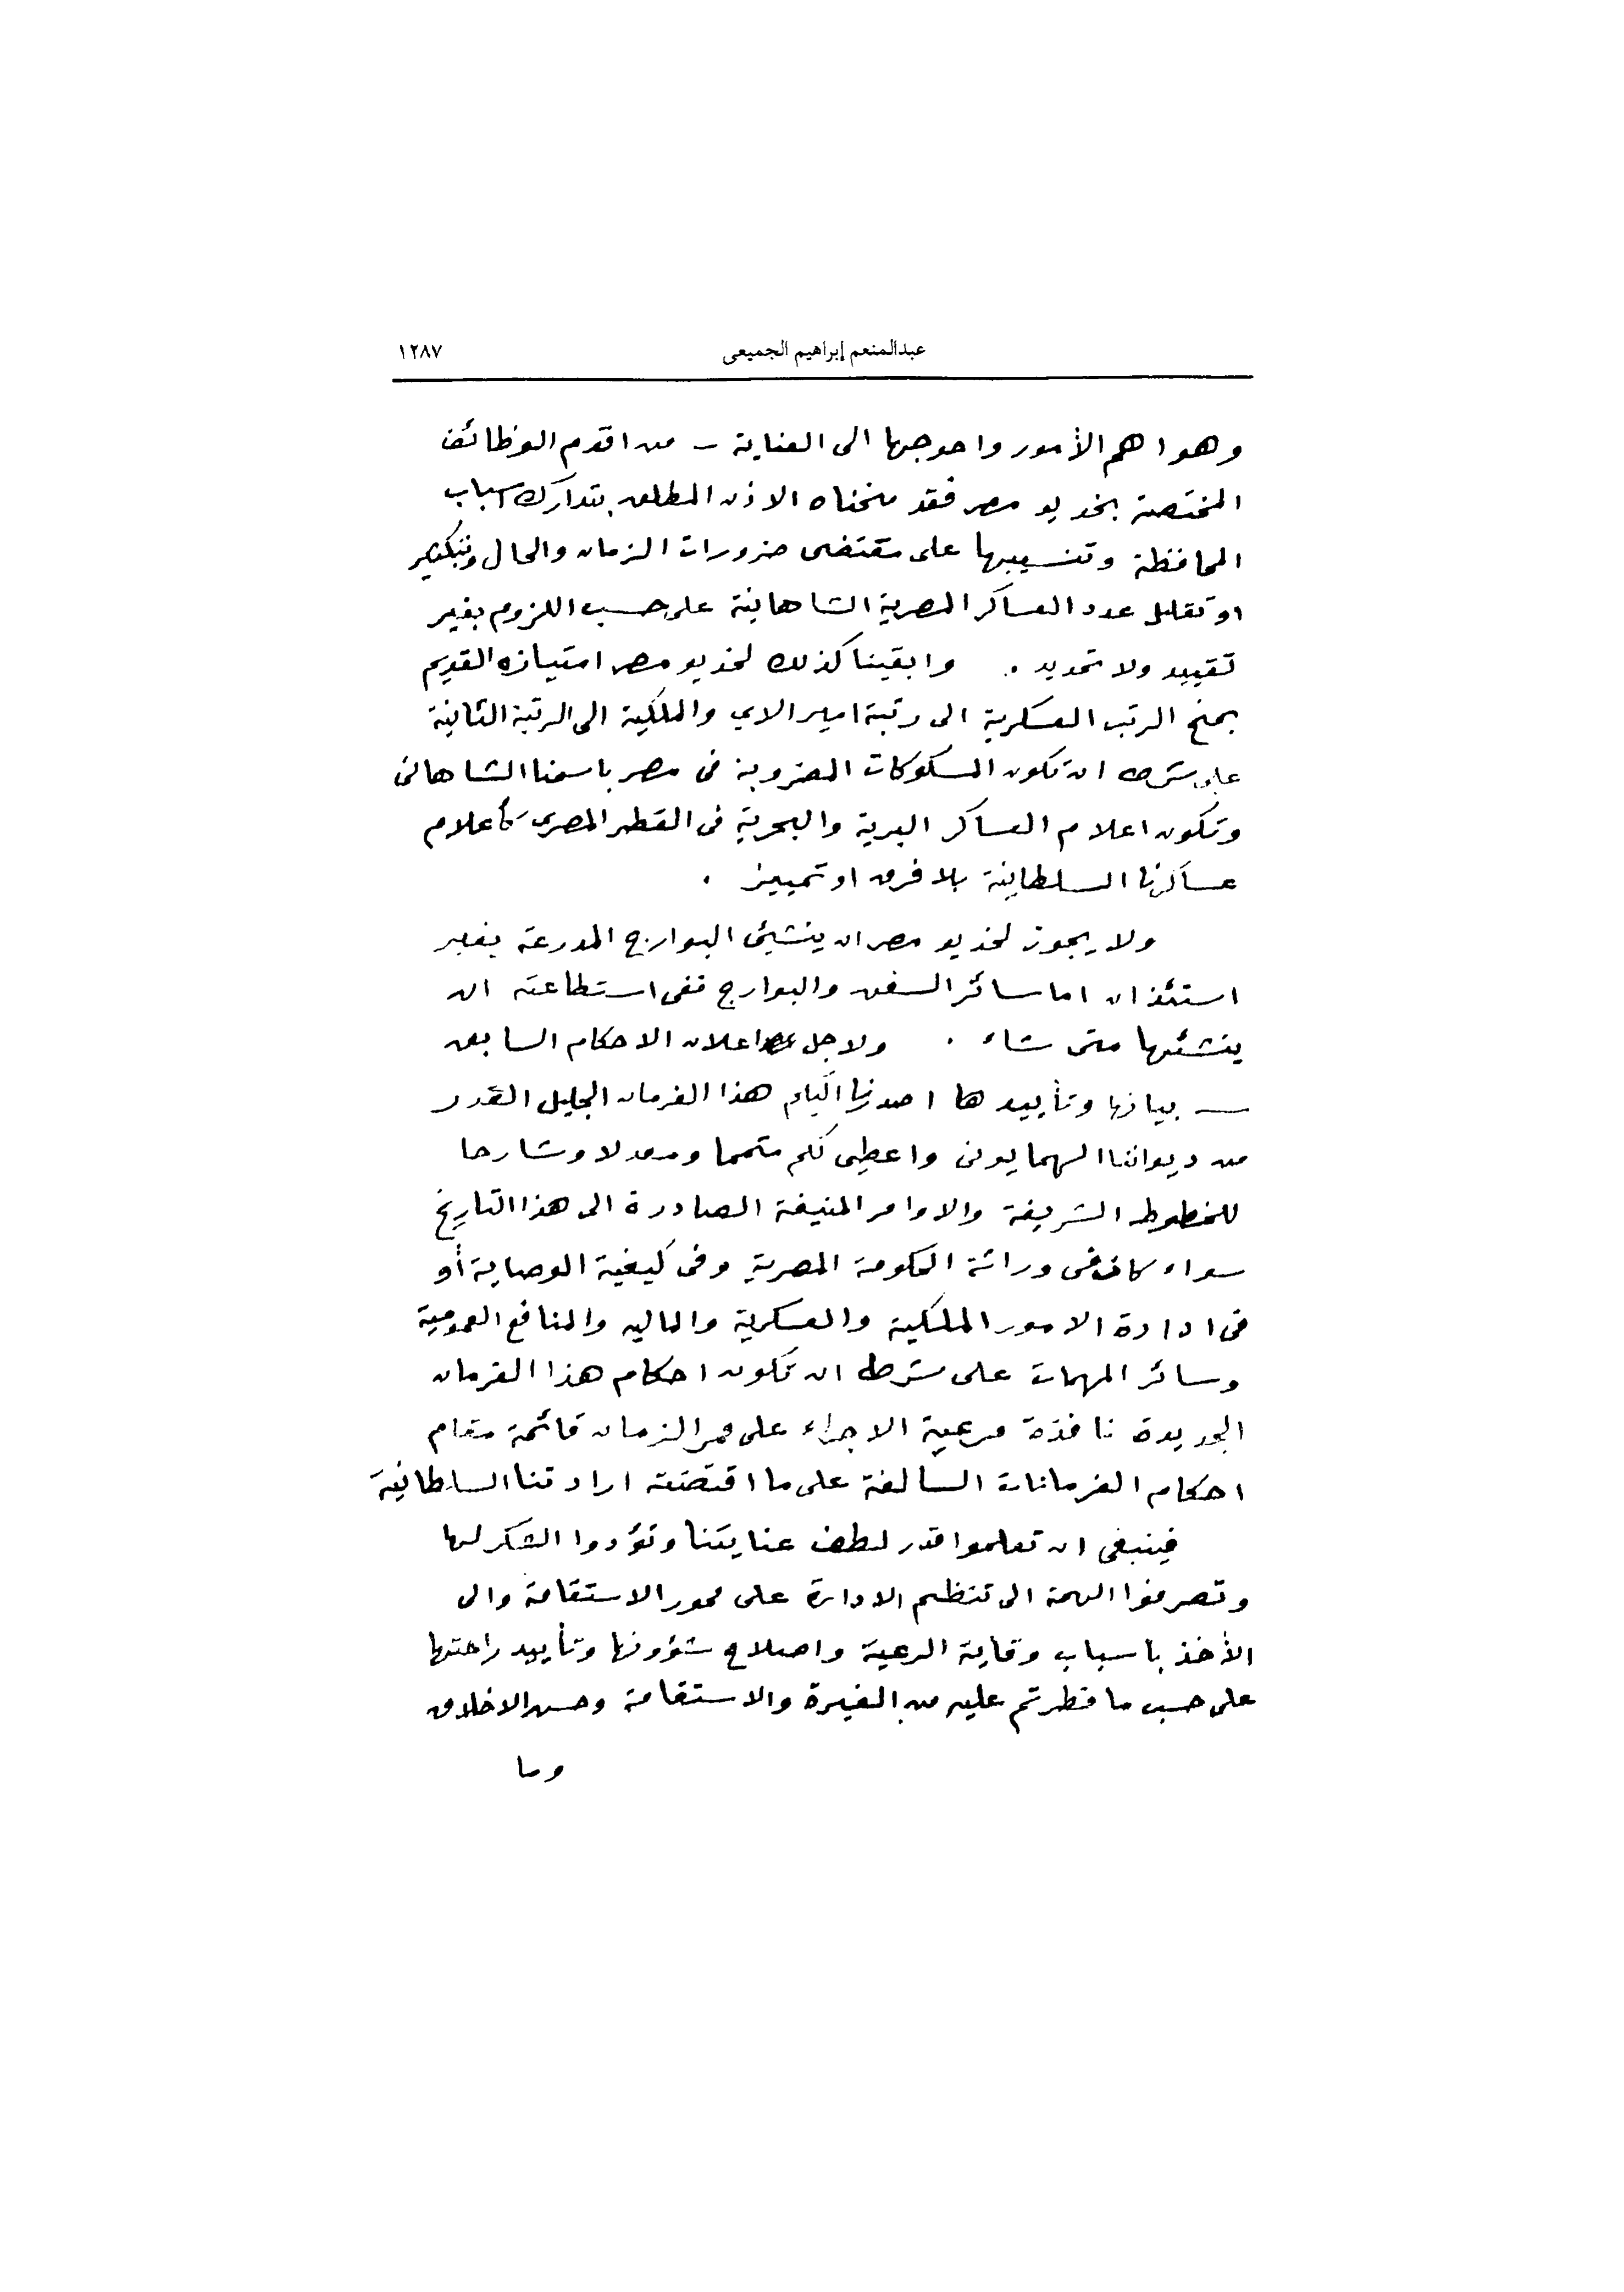 عبدالمنعم إبراهيم الجميعى ١٢٨٧
وهو اهم الأمور واحوجها الى العناية – من اقدم الوظائف
المختصة بخديو مصر فقد منحناه الاذن المطلق بتدارك اسباب
المحافظة وتنسيبها على مقتضى ضرورات الزمان والحال وبتكثير
او تقليل عدد العساكر المصرية الشاهانية على حسب اللزوم بغير
تقييد ولا تحديد . وابقينا كذلك لخديو مصر امتيازه القديم
بمنح الرتب العسكرية الى رتبة امير الاي والملكية الى الرتبة الثانية
على شرط ان تكون المسكوكات المضروبة فى مصر باسمنا الشاهانى
وتكون اعلام العساكر البرية والبحرية فى القطر المصرى كأعلام
عساكرنا السلطانية بلا فرق او تمييز .
ولا يجوز لخديو مصر ان ينشئ البوارج المدرعة بغير
استئذان اما سائر السفن والبوارج ففى استطاعته ان
ينشئها متى شاء . ولاجل اعلان الاحكام السابق
— بيانها وتأييدها اصدرنا اليكم هذا الفرمان الجليل القدر
من ديواننا الهمايونى واعطى لكم متمما ومعدلا وشارحا
للخطوط الشريفة والاوامر المنيفة الصادرة الى هذا التاريخ
سواء كان فى وراثة الحكومة المصرية وفى كيفية الوصاية أو
فى ادارة الامور الملكية والعسكرية والماليه والمنافع العمومية
وسائر المهمات على شرط ان تكون احكام هذا الفرمان
الجديدة نافذة مرعية الاجراء على ممر الزمان قائمة مقام
احكام الفرمانات السالفة على ما اقتضته ارادتنا السلطانية
فينبغى ان تعلموا قدر لطف عنايتنا وتؤدوا الشكر لها
وتصرفوا الهمة الى تنظيم الادارة على محور الاستقامة والى
الأخذ باسباب وقاية الرعية واصلاح شؤونها وتأييد راحتها
على حسب ما فطرتم عليه من الغيرة والاستقامة وحسن الاخلاق
وما